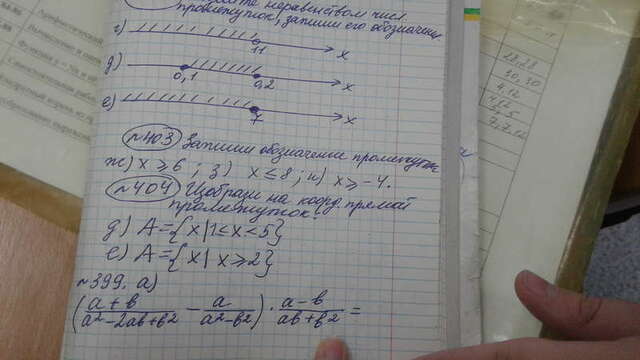 неравенством числ
промежуток, запиши его обозначение
г)
11 x
д)
0,1 0,2 x
е)
7 x
№403 Запиши обозначение промежутка
ж) x ≥ 6 ; з) x ≤ 8 ; и) x ≥ -4.
№404 Изобрази на коорд. прямой
промежуток:
д) A = {x | 1 ≤ x < 5}
е) A = {x | x ≥ 2}
№399. а)
(a + b / a² - 2ab + b² - a / a² - b²) · a - b / ab + b² =
18,28
30,30
4,12
7,7,12